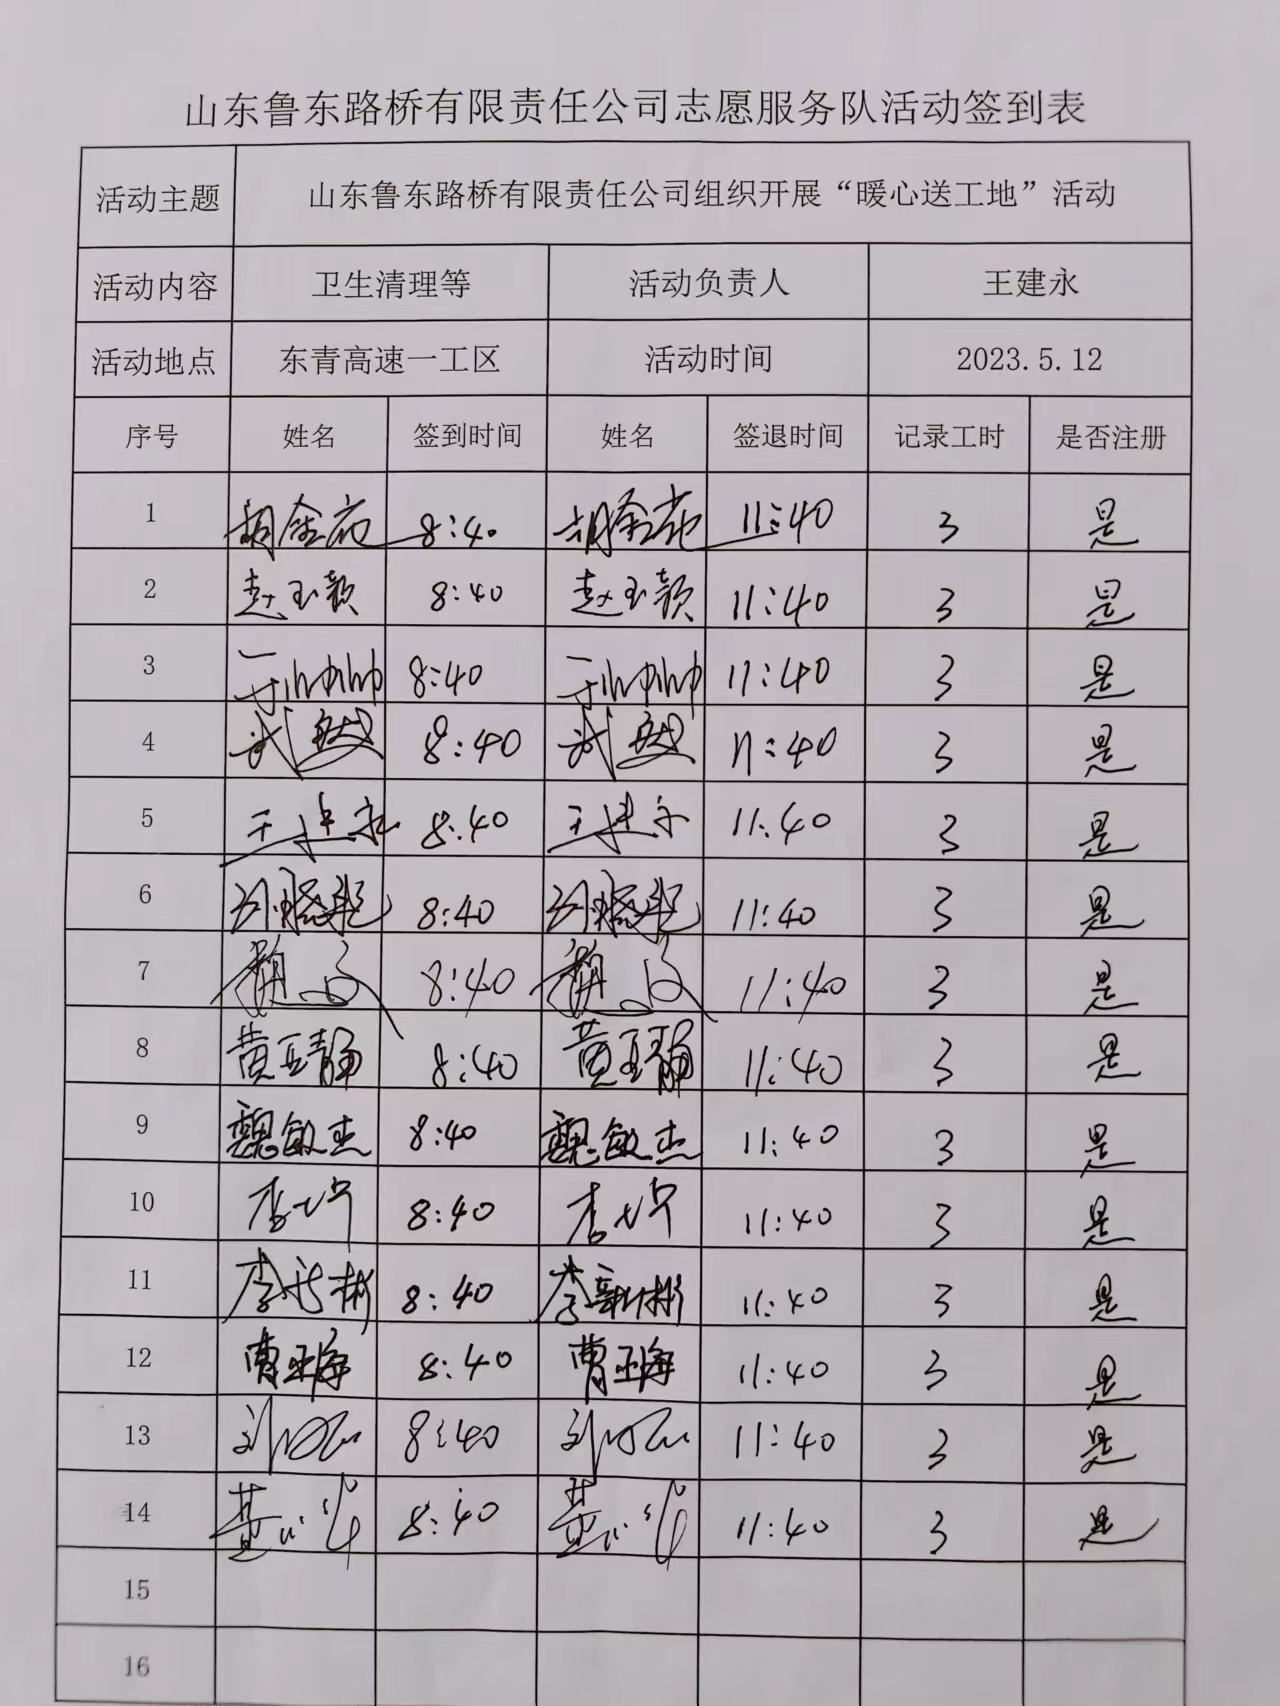 山东鲁东路桥有限责任公司志愿服务队活动签到表
活动主题 山东鲁东路桥有限责任公司组织开展“暖心送工地”活动
活动内容 卫生清理等 活动负责人 王建永
活动地点 东青高速一工区 活动时间 2023.5.12
序号 姓名 签到时间 姓名 签退时间 记录工时 是否注册
1 胡金花 8:40 胡金花 11:40 3 是
2 赵玉颖 8:40 赵玉颖 11:40 3 是
3 于帅帅 8:40 于帅帅 11:40 3 是
4 8:40 11:40 3 是
5 王建永 8:40 王建永 11:40 3 是
6 刘晓艳 8:40 刘晓艳 11:40 3 是
7 8:40 11:40 3 是
8 黄亚静 8:40 黄亚静 11:40 3 是
9 魏敏杰 8:40 魏敏杰 11:40 3 是
10 李 8:40 李 11:40 3 是
11 李新彬 8:40 李新彬 11:40 3 是
12 曹亚海 8:40 曹亚海 11:40 3 是
13 刘 8:40 刘 11:40 3 是
14 8:40 11:40 3 是
15
16